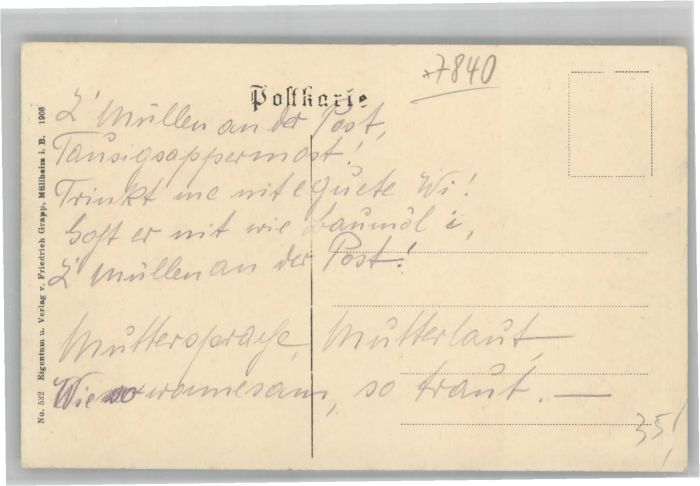 Postkarte
*7840
Z' Müllen an der Post,
Tausigsappermost!
Trinkt me nit e guete Wi!
Goht er nit wie Baumöl i,
Z' Müllen an der Post!
Muttersprache, Mutterlaut,
Wie so wonnesam, so traut. —
35,
No. 532 Eigentum u. Verlag v. Friedrich Grapp, Müllheim i. B. 1908